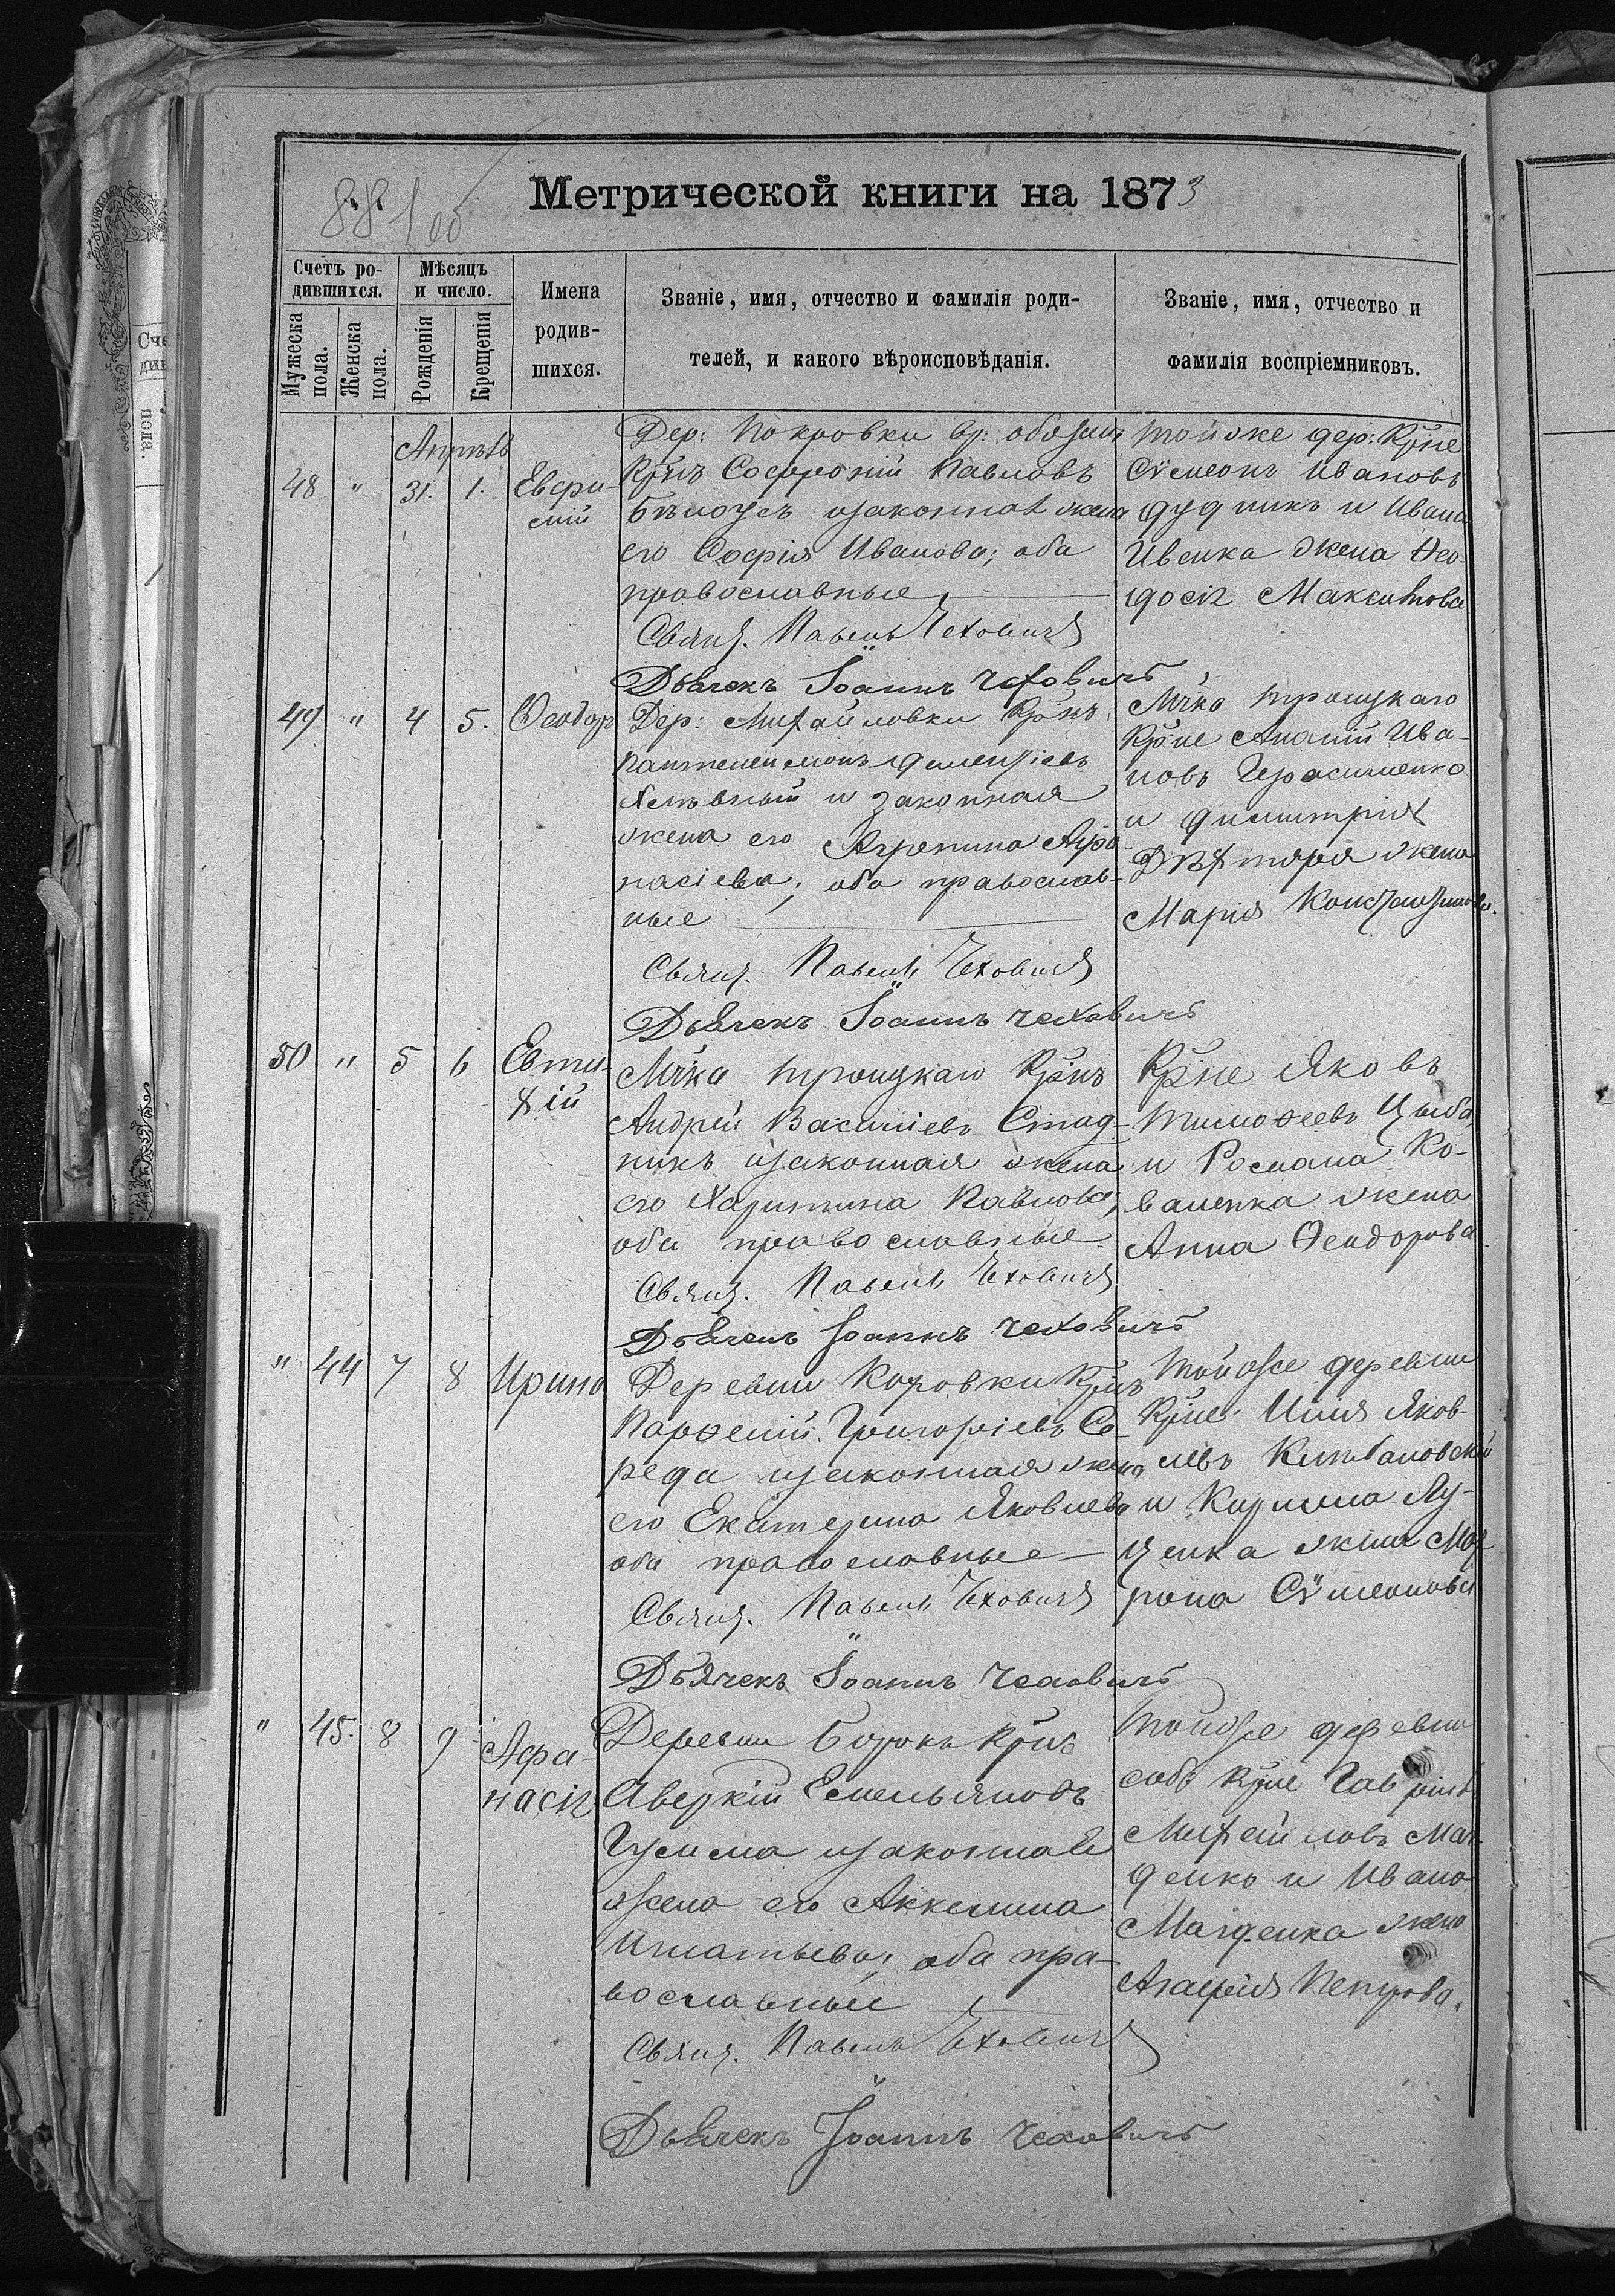 Метрической книги на 1873
881 об
Счетъ ро-
дившихся.
Мѣсяцъ
и число.
Имена
родив-
шихся.
Званіе, имя, отчество и фамилія роди-
телей, и какого вѣроисповѣданія.
Званіе, имя, отчество и
фамилія воспріемниковъ.
Мужеска
пола.
Женска
пола.
Рожденія
Крещенія
Апрѣль
48 " 31. 1.
Евфи-
мій
Дер: Покровки
Крнъ Софроній Павловъ
Бѣлоусъ изаконная жена
его Софія Иванова; оба
православные
Свящ. Павелъ Чеховичъ
Дьячекъ Іоаннъ Чеховичъ
Тойже дер: Крне
Сѵмеонъ Ивановъ
Дудникъ и Ивана
Ивенка жена Ѳео-
досія Максимова
49 " 4 5.
Ѳеодоръ
Дер: Михайловки Крнъ
Пантелеимонъ
и законная
жена его Агрепина Афа-
насіева; оба православ-
ные
Свящ. Павелъ Чеховичъ
Дьячекъ Іоаннъ Чеховичъ
Мчка Троицкаго
Крне Ананій Ива-
новъ Герасименко
и Димитрія
Дѣхтяря жена
Марія Константинова.
50 " 5 6
Евти-
хій
Мчка Троицкаго Крнъ
Андрей Василіевъ Стад-
никъ изаконная жена
его Харитина Павлова;
оба православные
Свящ. Павелъ Чеховичъ
Дьячекъ Іоаннъ Чеховичъ
Крне Яковъ
Тимоѳеевъ Цыба
и Романа Ко-
валенка жена
Анна Ѳеодорова.
" 44 7 8
Ирина
Деревни Коровки Крнъ
Парѳеній Григоріевъ Се-
реда изаконная жена
его Екатерина Яковлева
оба православные
Свящ. Павелъ Чеховичъ
Дьячекъ Іоаннъ Чеховичъ
Тойже деревни
Крне Илія Яков-
левъ
и Кирилла Лу-
ценка жена Мат
рона Сѵмеонова
" 45. 8 9
Афа-
насія
Деревни Борокъ Крнъ
Аверкій Емельяновъ
изаконная
жена его Аккелина
Игнатьева; оба пра-
вославные
Свящ. Павелъ Чеховичъ
Дьячекъ Іоаннъ Чеховичъ
Тойже деревни
собс Крне Гавріилъ
Михайловъ Маг-
денко и Ивана
Магденка жена
Агафія Петрова.
Сче
див
пола.